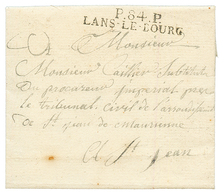 P.84.P.
LANS-LE-BOURG
A Monsieur
Monsieur Caillier Substitut
Du procureur imperial près
le tribunal civil de l'arrondisst
de St jean de maurienne
A St jean